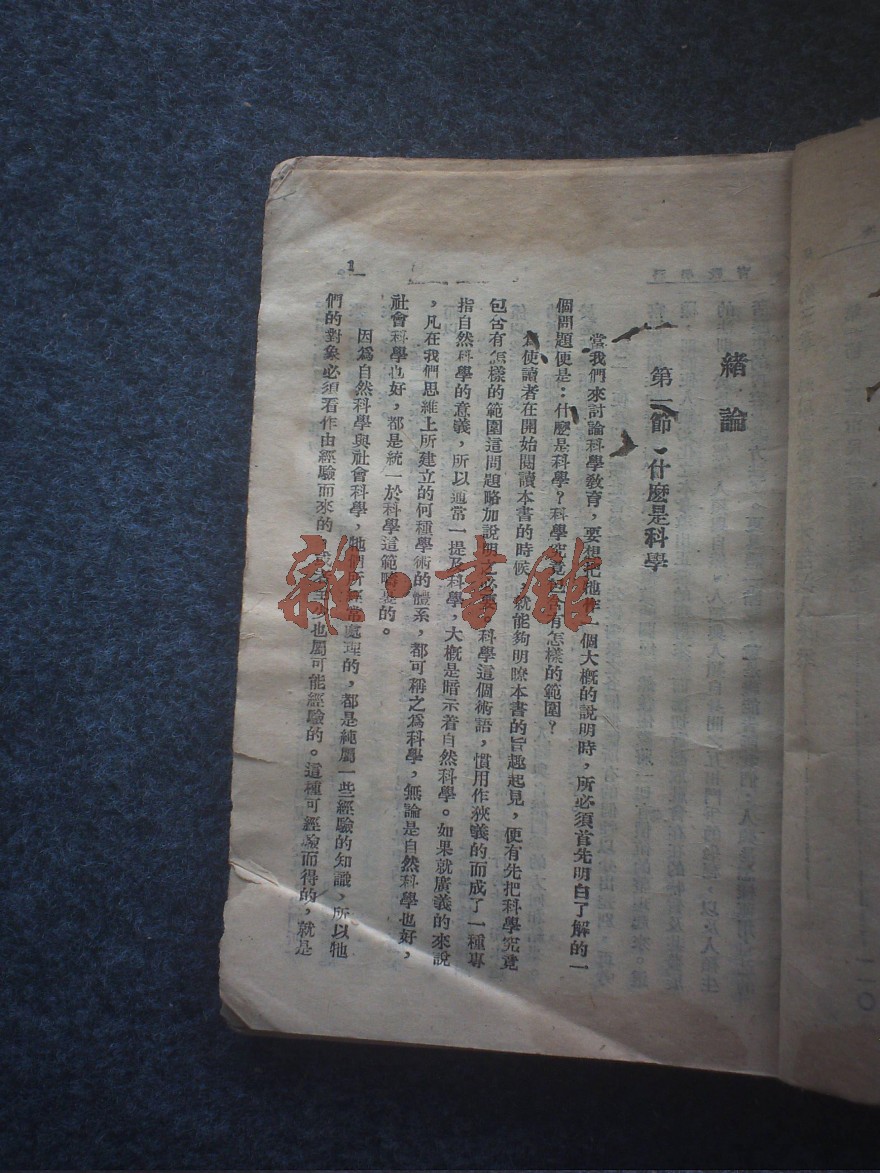 緒論
第一節 什麼是科學
當我們來討論科學敎育，要想把牠作一個大概的說明時，所必須首先明白了解的一
個問題便是：什麼是科學？科學究竟包含有怎樣的範圍？
使讀者在開始閱讀本書的時候，就能夠明瞭本書的旨趣起見，便有先把科學究竟
包含有怎樣的範圍這問題略加說明之必要。科學這個術語，慣用作狹義的而成了一種專
指自然科學的意義，所以通常一提及科學，大概是暗示着自然科學。如果就廣義的來說
，凡在我們思維上所建立的何種學術的體系，都可稱之爲科學，無論是自然科學也好，
社會科學也好，都是統一於科學這範疇的。
因爲自然科學與社會科學，牠們所經常處理的，都是純屬一些經驗的知識，所以牠
們的對象必須看作由經驗而來的，或者至少也屬可能經驗的。這種可經驗而得的，就是
1
雜·書館